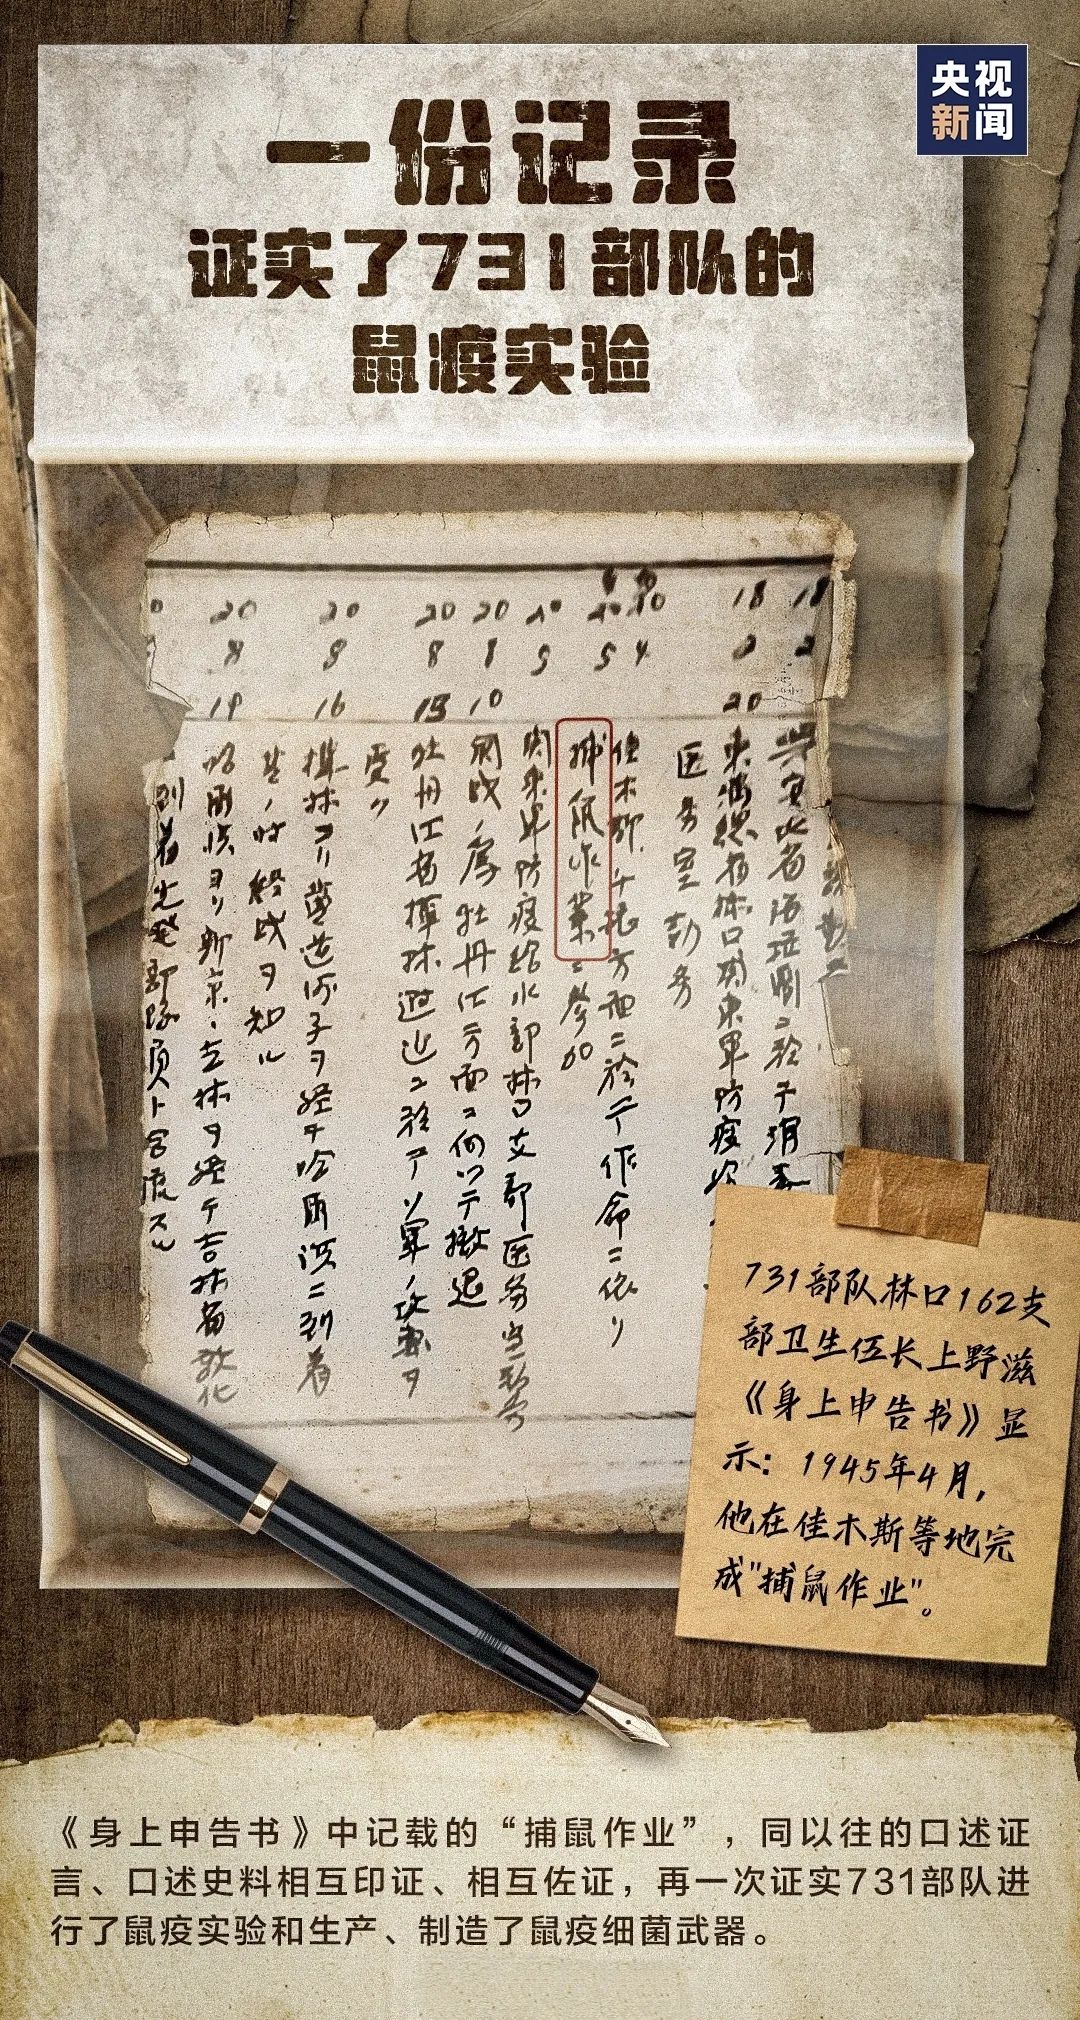 央视
新闻
一份记录
证实了731部队的
鼠疫实验
18 2
18 2 20
20 4
20 5
20 5
20 8 10
20 8 15
20 8 16
20 8 19
医务室勤务
東満総省林口関東軍防疫
佳木斯、千振方面ニ於テ作命ニ依リ
捕鼠作業ニ参加
関東軍防疫給水部林口支部医務室勤務
牡丹江省樺林附近ニ於テソ軍ノ攻撃ヲ
受ク
樺林ヨリ横道河子ヲ経テ哈爾浜ニ到着
其ノ時終戦ヲ知ル
哈爾浜ヨリ新京、吉林ヲ経テ吉林省敦化
到着先発部隊員ト合流ス
731部队林口162支
部卫生伍长上野滋
《身上申告书》显
示：1945年4月，
他在佳木斯等地完
成"捕鼠作业"。
《身上申告书》中记载的“捕鼠作业”，同以往的口述证
言、口述史料相互印证、相互佐证，再一次证实731部队进
行了鼠疫实验和生产、制造了鼠疫细菌武器。